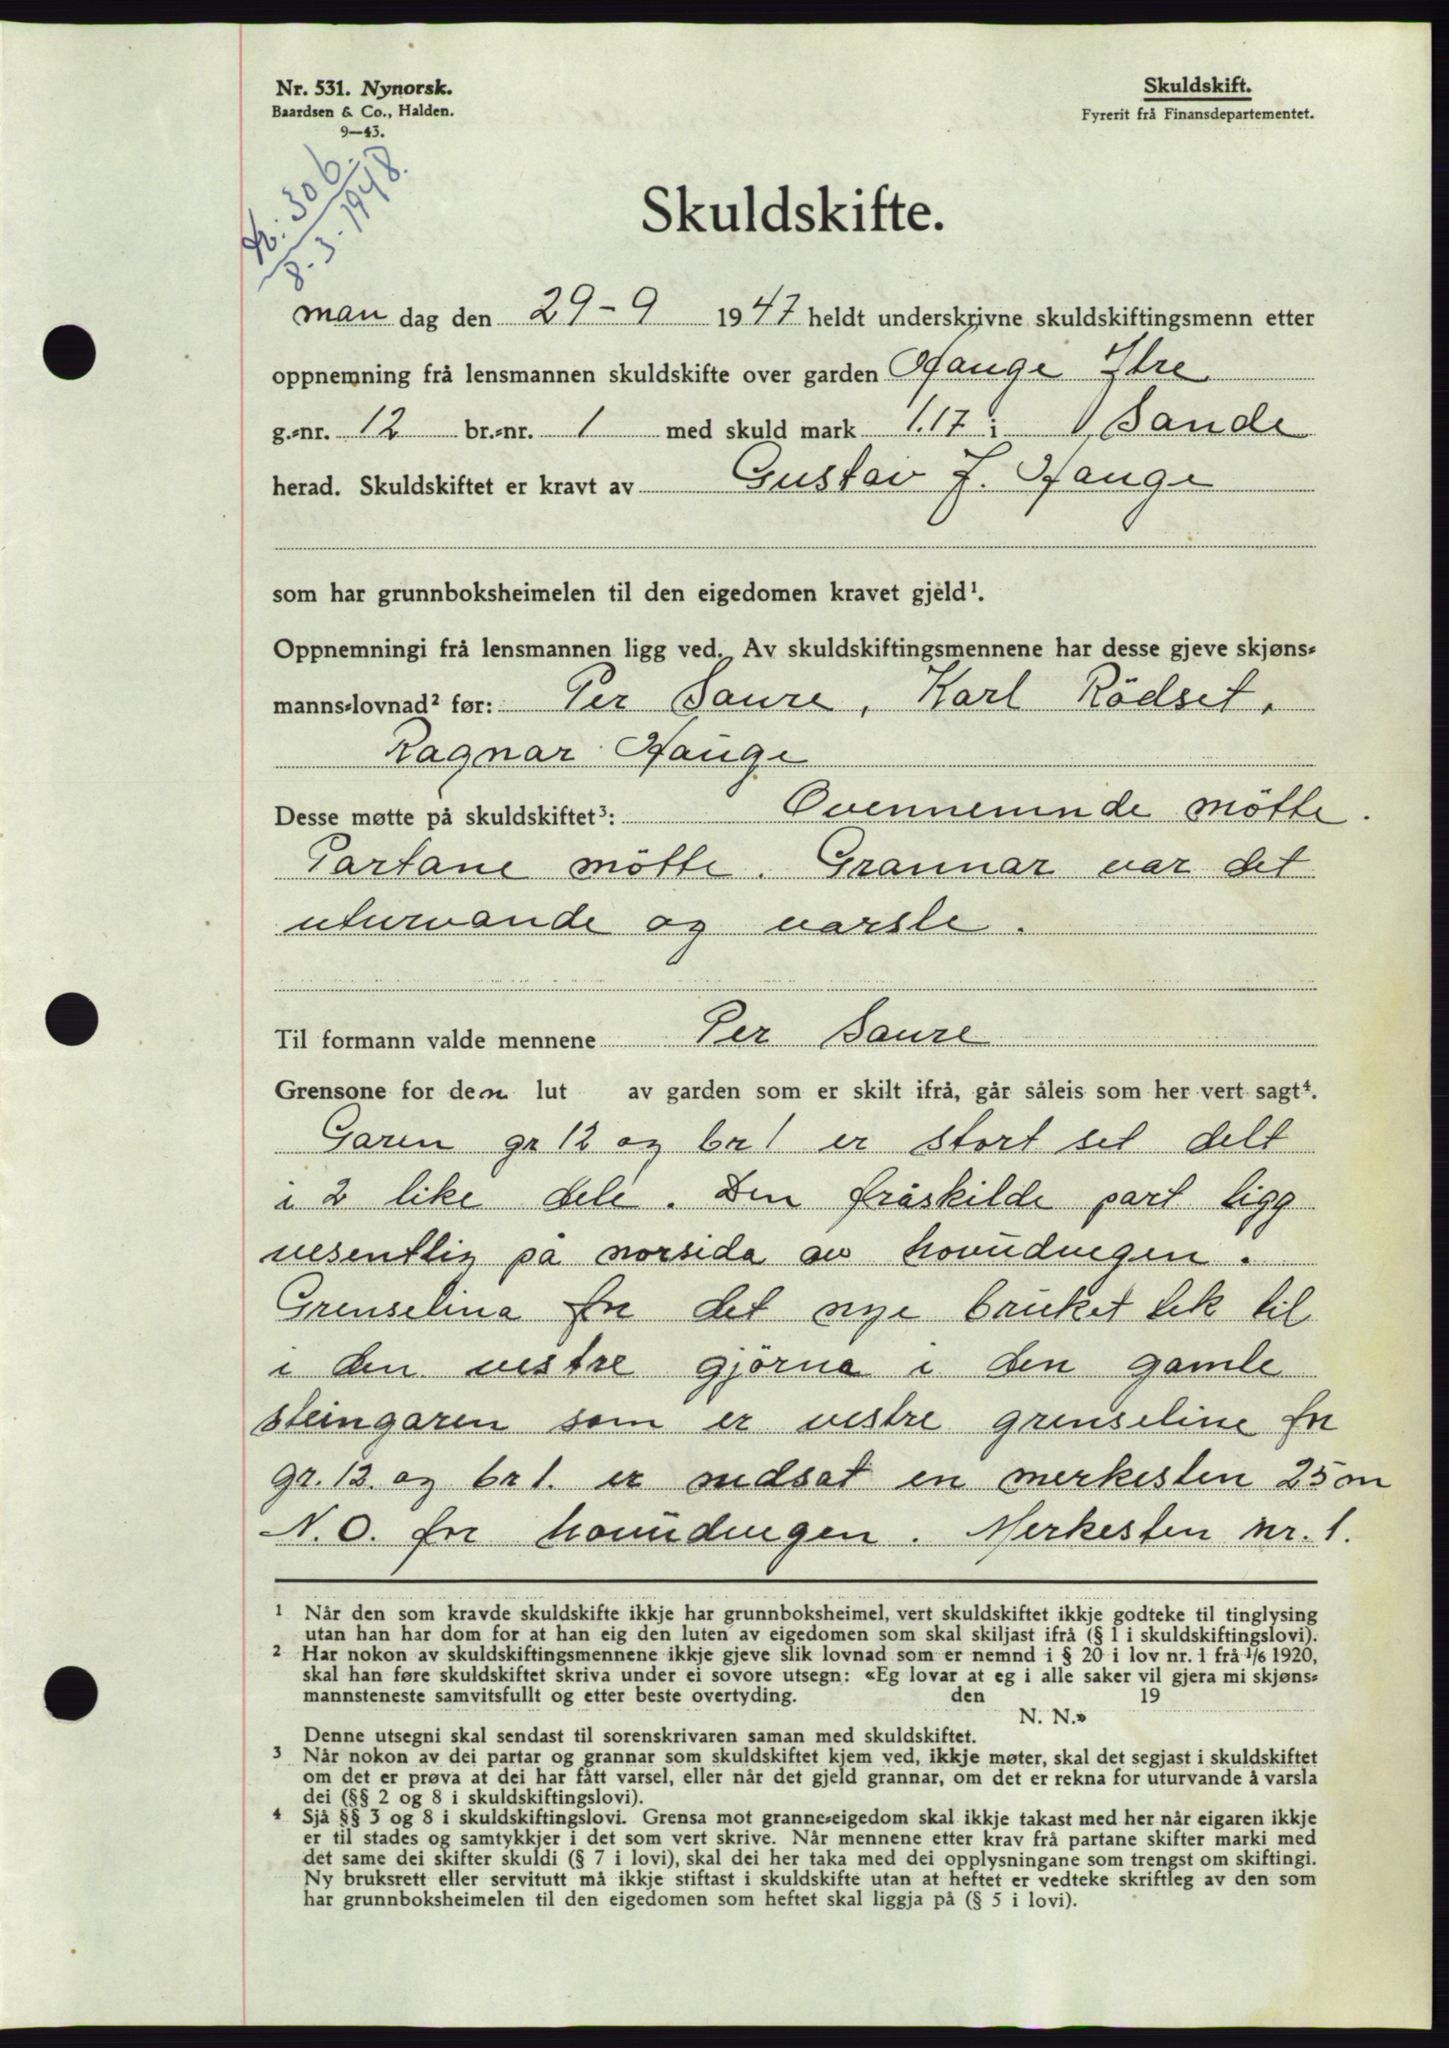 Nr. 531. Nynorsk.
Baardsen & Co., Halden.
9—43.
Skuldskift.
Fyrerit frå Finansdepartementet.
Nr. 306.
8-3-1948.
Skuldskifte.
man dag den 29-9 1947 heldt underskrivne skuldskiftingsmenn etter
oppnemning frå lensmannen skuldskifte over garden Hauge Ytre
g.-nr. 12 br.-nr. 1 med skuld mark 1.17 i Sande
herad. Skuldskiftet er kravt av Gustav J. Hauge
som har grunnboksheimelen til den eigedomen kravet gjeld¹.
Oppnemningi frå lensmannen ligg ved. Av skuldskiftingsmennene har desse gjeve skjøns-
manns-lovnad² før: Per Saure, Karl Rödset,
Ragnar Hauge
Desse møtte på skuldskiftet³: Ovennemnde mötte.
Partane mötte. Grannar var det
uturvande og varsle.
Til formann valde mennene Per Saure
Grensone for den lut av garden som er skilt ifrå, går såleis som her vert sagt⁴.
Garen gr 12 og br 1 er stort set delt
i 2 like dele. Den fråskilde part ligg
vesentlig på norsida av hovudvegen.
Grenselina for det nye bruket tek til
i den vestre gjörna i den gamle
steingaren som er vestre grenseline for
gr. 12. og br 1. er nedsat en merkesten 25 m
N.O. for hovudvegen. Merkesten nr. 1.
1 Når den som kravde skuldskifte ikkje har grunnboksheimel, vert skuldskiftet ikkje godteke til tinglysing
utan han har dom for at han eig den luten av eigedomen som skal skiljast ifrå (§ 1 i skuldskiftingslovi).
2 Har nokon av skuldskiftingsmennene ikkje gjeve slik lovnad som er nemnd i § 20 i lov nr. 1 frå 1/6 1920,
skal han føre skuldskiftet skriva under ei sovore utsegn: «Eg lovar at eg i alle saker vil gjera mi skjøns-
mannsteneste samvitsfullt og etter beste overtyding. den 19
N. N.»
Denne utsegni skal sendast til sorenskrivaren saman med skuldskiftet.
3 Når nokon av dei partar og grannar som skuldskiftet kjem ved, ikkje møter, skal det segjast i skuldskiftet
om det er prøva at dei har fått varsel, eller når det gjeld grannar, om det er rekna for uturvande å varsla
dei (§§ 2 og 8 i skuldskiftingslovi).
4 Sjå §§ 3 og 8 i skuldskiftingslovi. Grensa mot granne-eigedom skal ikkje takast med her når eigaren ikkje
er til stades og samtykkjer i det som vert skrive. Når mennene etter krav frå partane skifter marki med
det same dei skifter skuldi (§ 7 i lovi), skal dei her taka med dei opplysningane som trengst om skiftingi.
Ny bruksrett eller servitutt må ikkje stiftast i skuldskifte utan at heftet er vedteke skriftleg av den som
har grunnboksheimelen til den eigedomen som heftet skal liggja på (§ 5 i lovi).